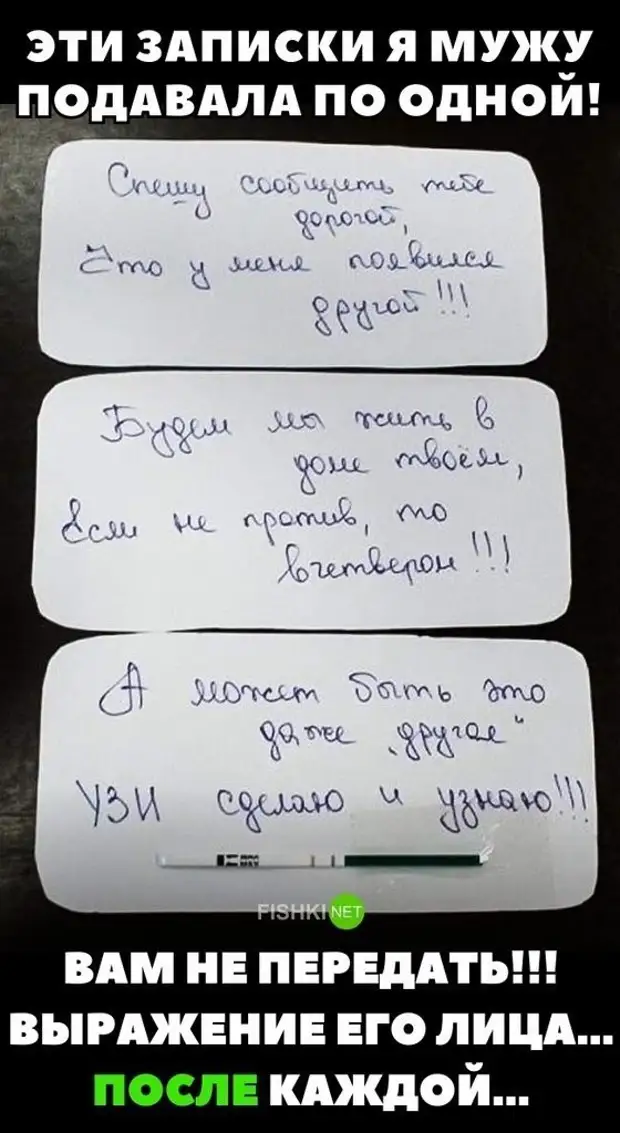 ЭТИ ЗАПИСКИ Я МУЖУ
ПОДАВАЛА ПО ОДНОЙ!
Спешу сообщить тебе
дорогой,
Что у меня появился
другой!!!
Будем мы жить в
доме твоём,
Если не против, то
вчетвером!!!
А может быть это
даже „другая"
УЗИ сделаю и узнаю!!!
FISHKI NET
ВАМ НЕ ПЕРЕДАТЬ!!!
ВЫРАЖЕНИЕ ЕГО ЛИЦА...
ПОСЛЕ КАЖДОЙ...